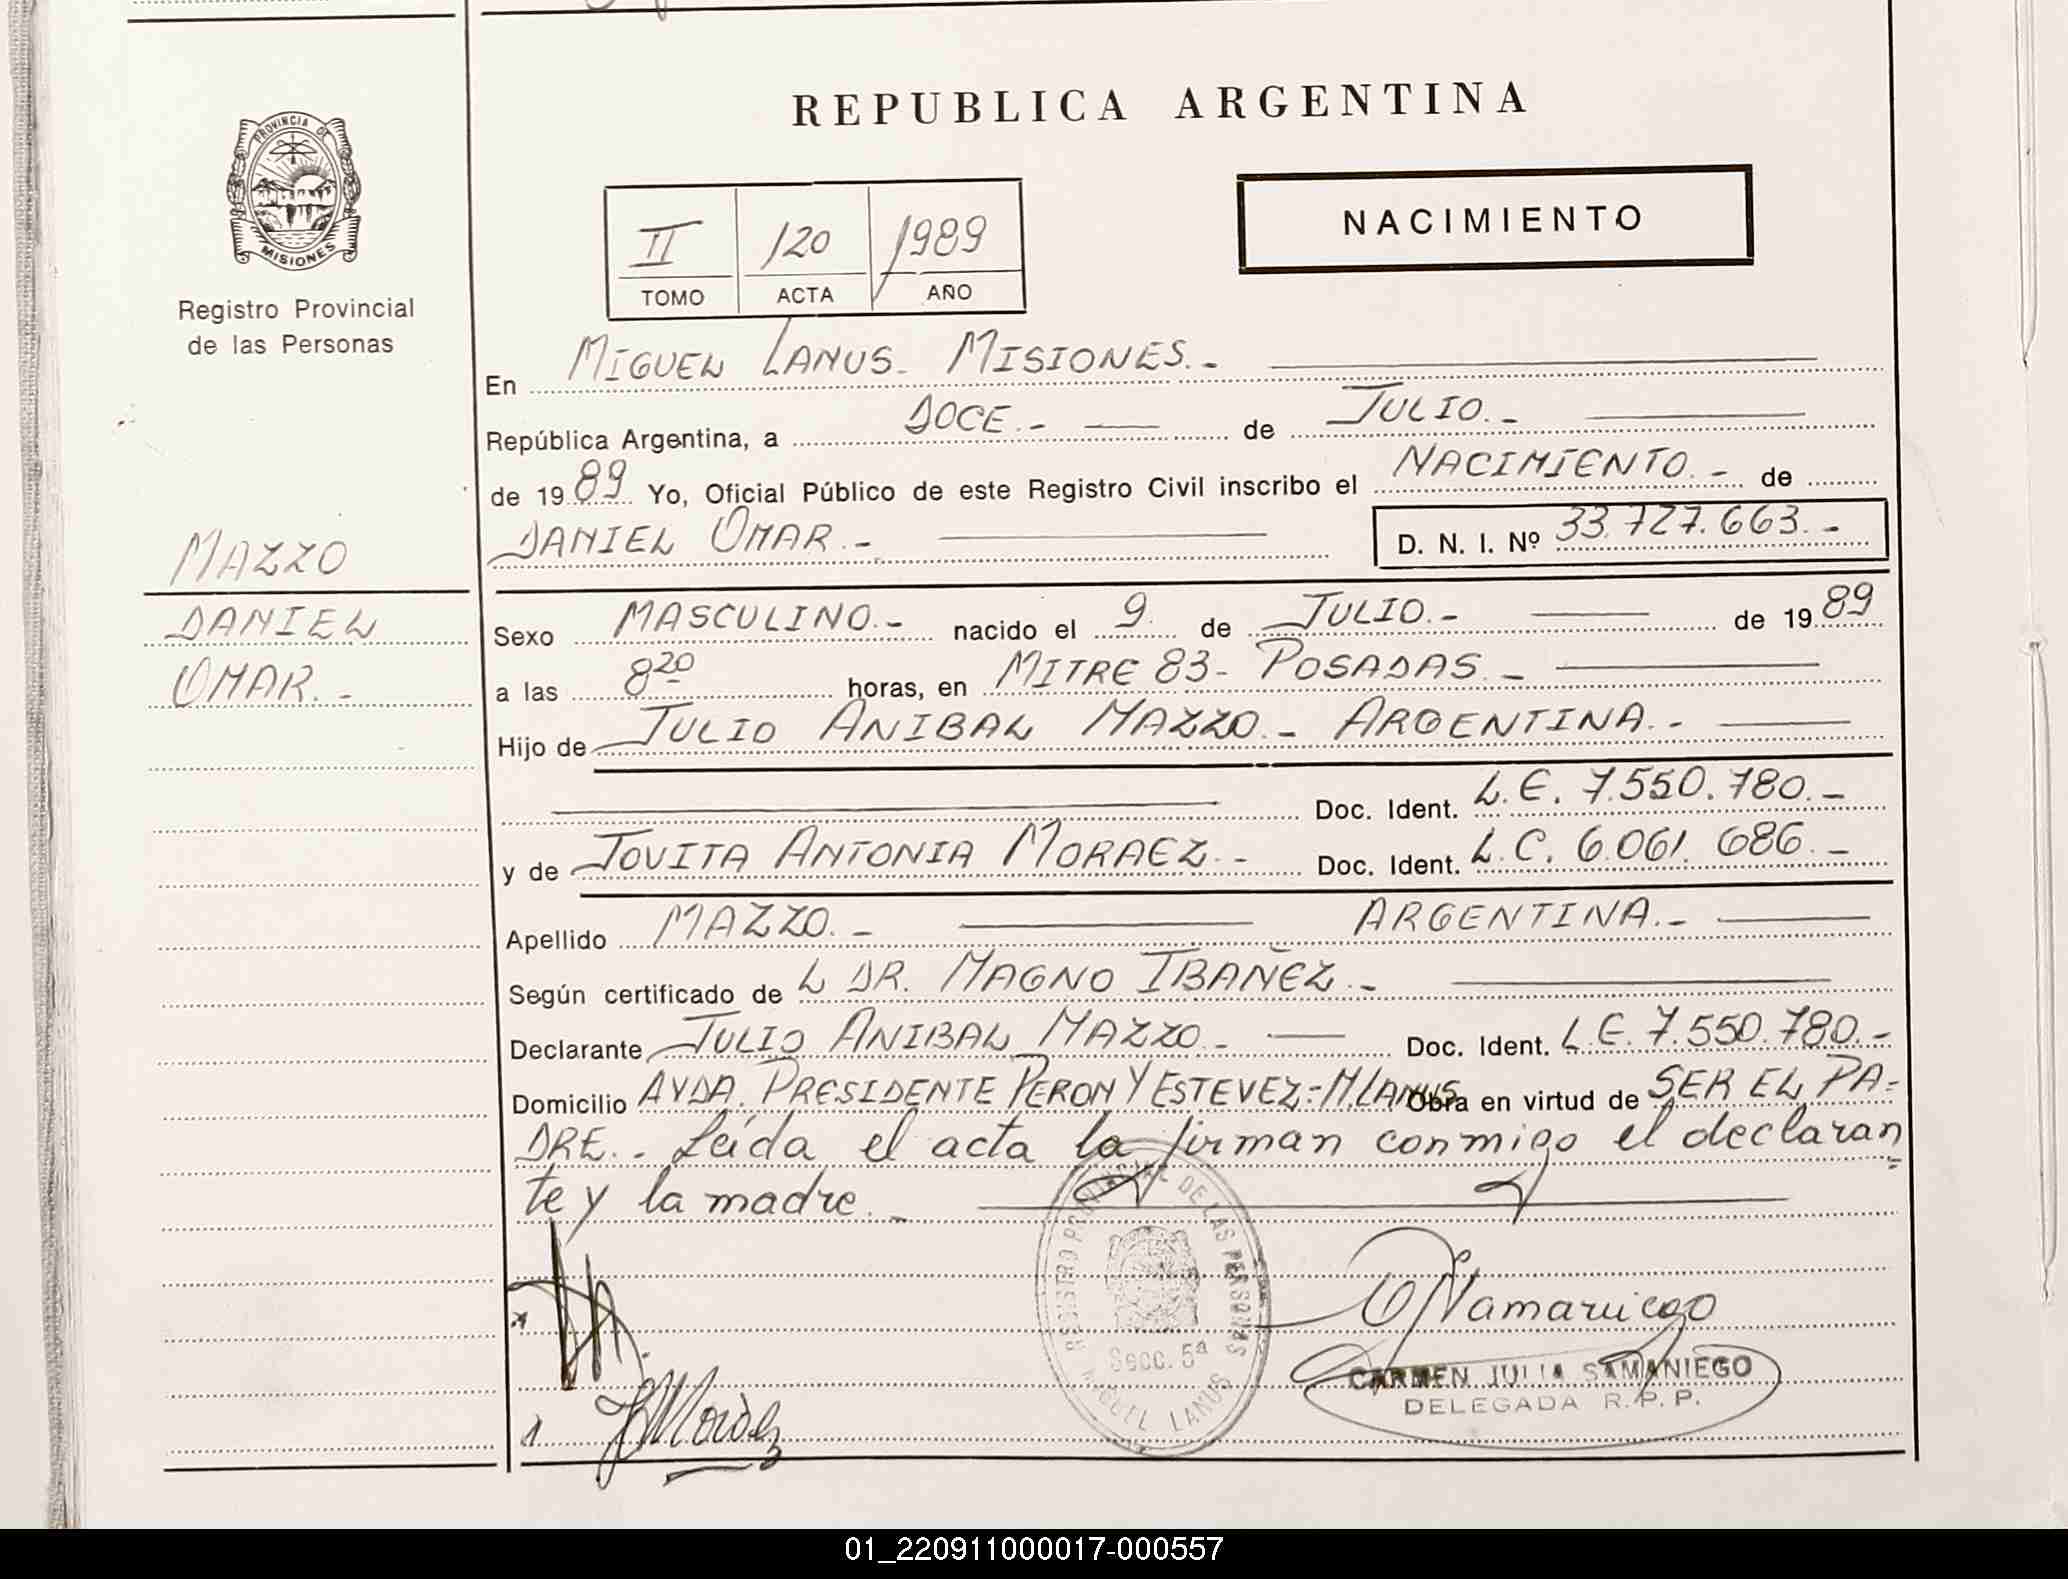 REPUBLICA ARGENTINA
PROVINCIA DE
MISIONES
Registro Provincial
de las Personas
II 120 1989
TOMO ACTA AÑO
NACIMIENTO
En MIGUEL LANUS - MISIONES.-
República Argentina, a DOCE.- de JULIO.-
de 1989 Yo, Oficial Público de este Registro Civil inscribo el NACIMIENTO.- de
DANIEL OMAR.- D. N. I. Nº 33.727.663.-
MAZZO
DANIEL
OMAR.-
Sexo MASCULINO.- nacido el 9. de JULIO.- de 1989
a las 8 20 horas, en MITRE 83- POSADAS.-
Hijo de JULIO ANIBAL MAZZO.- ARGENTINA.-
Doc. Ident. L.E. 7.550.780.-
y de JOVITA ANTONIA MORAEZ.- Doc. Ident. L.C. 6.061.686.-
Apellido MAZZO.- ARGENTINA.-
Según certificado de L DR. MAGNO IBAÑEZ.-
Declarante JULIO ANIBAL MAZZO.- Doc. Ident. L.E. 7.550.780.-
Domicilio AVDA. PRESIDENTE PERON Y ESTEVEZ=M.LANUS Obra en virtud de SER EL PA=
DRE.. Leída el acta la firman conmigo el declaran
te y la madre.-
REGISTRO PROVINCIAL DE LAS PERSONAS
Secc. 5ª
MIGUEL LANUS
CARMEN JULIA SAMANIEGO
DELEGADA R.P.P.
01_220911000017-000557